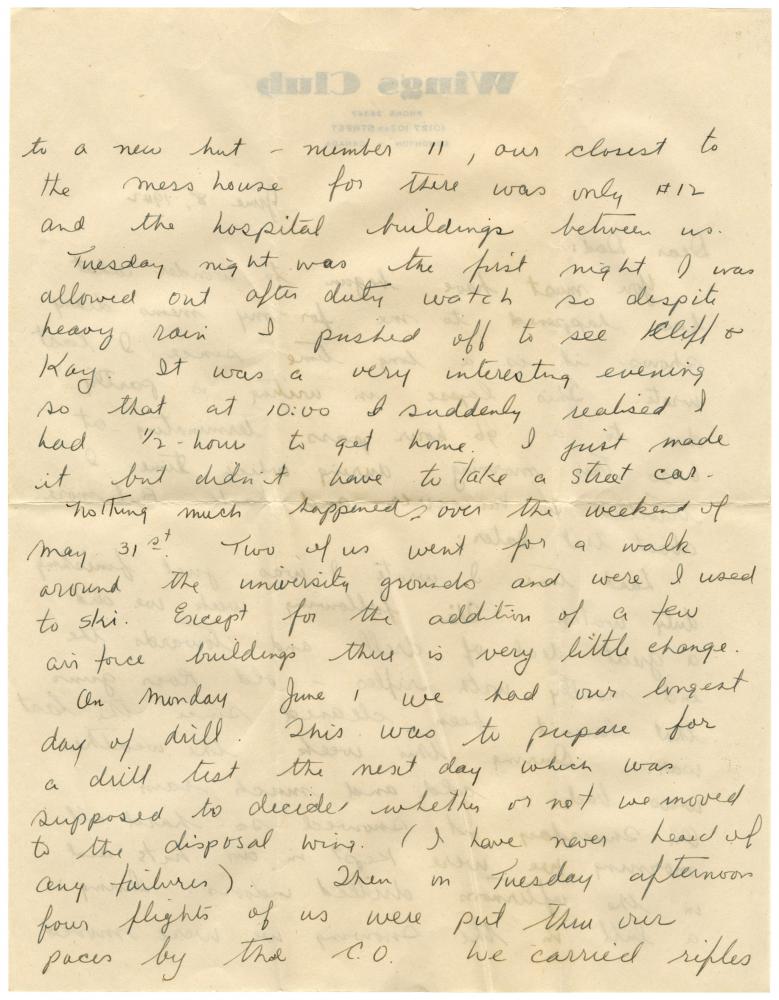 Wings Club
to a new hut - number 11, our closest to
the mess house for there was only #12
and the hospital buildings between us.
Tuesday night was the first night I was
allowed out after duty watch so despite
heavy rain I pushed off to see Cliff &
Kay. It was a very interesting evening
so that at 10:00 I suddenly realised I
had 1/2-hour to get home. I just made
it but didn't have to take a street car.
Nothing much happened over the weekend of
May 31st. Two of us went for a walk
around the university grounds and were I used
to ski. Except for the addition of a few
air force buildings there is very little change.
On Monday June 1 we had our longest
day of drill. This was to prepare for
a drill test the next day which was
supposed to decide whether or not we moved
to the disposal wing. (I have never heard of
any failures). Then on Tuesday afternoon
four flights of us were put thru our
paces by the C.O. We carried rifles